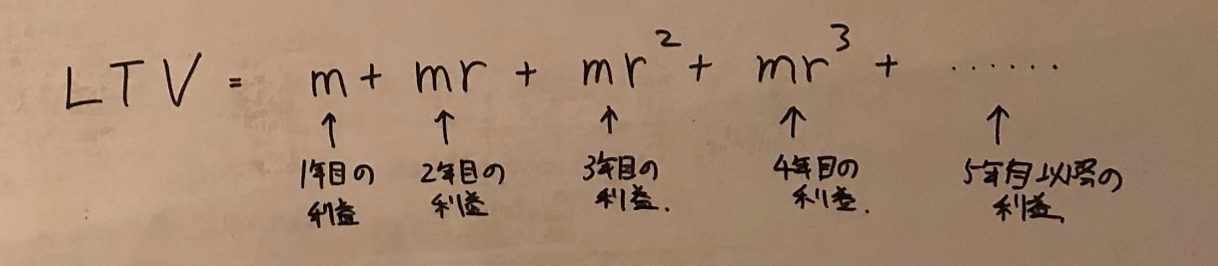 LTV = m + mr + mr² + mr³ + ......
↑ ↑ ↑ ↑ ↑
1年目の 2年目の 3年目の 4年目の 5年目以降の
利益 利益 利益. 利益. 利益